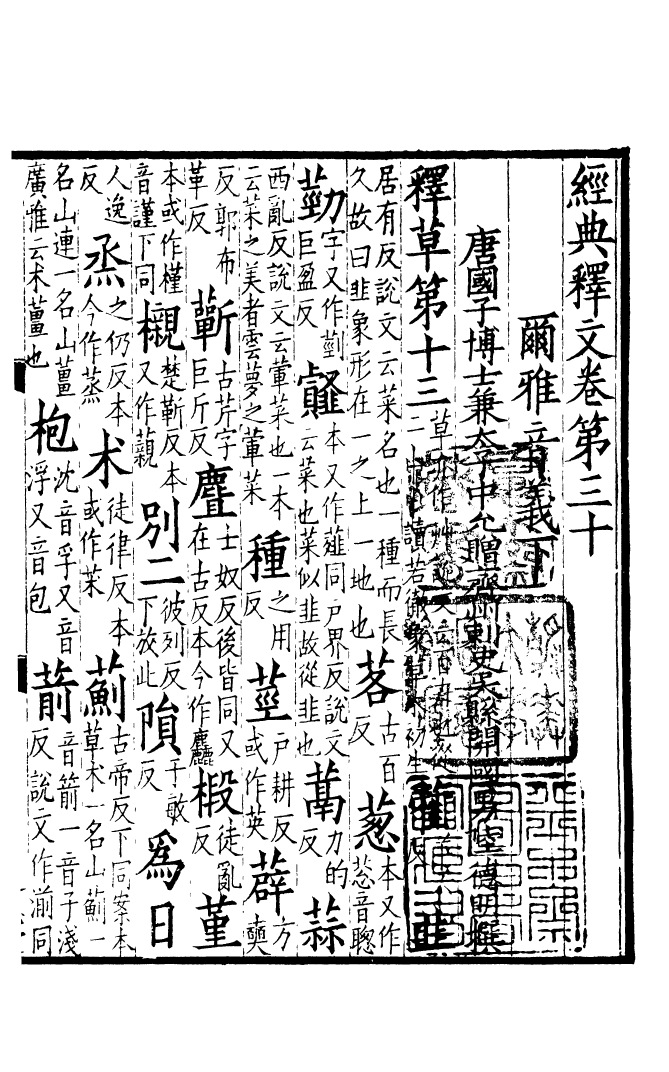 經典釋文卷第三十
爾雅音義下
唐國子博士兼太子中允贈齊州刺史吳縣開國男陸德明撰
釋草第十三 草亦作艸說文云百卉也從二屮屮讀若徹象草木初生 韭
居有反說文云菜名也一種而長久故曰韭象形在一之上一地也 茖 古百反 葱 本又作䓗音聰
葝 字又作巨盈反 䪥 本又作薤同戶界反說文云菜也菜似韭故從韭也 蒚 力的反 蒜
西亂反說文云葷菜也一本云菜之美者雲夢之葷菜 種 之用反 莖 戶耕反或作英 薜 方奭
反郭布革反 蘄 古芹字巨斤反 士奴反後皆同又在古反本今作麤 椴 徒亂反 菫
本或作槿音謹下同 櫬 楚靳反本又作藽 別二 彼列反下放此 隕 于敏反 爲日
人逸反 烝 之仍反本今作蒸 术 徒律反本或作茱 薊 古帝反下同案本草术一名山薊一
名山連一名山薑廣雅云术薑也 枹 沈音孚又音浮又音包 葥 音箭一音子淺反說文作湔同